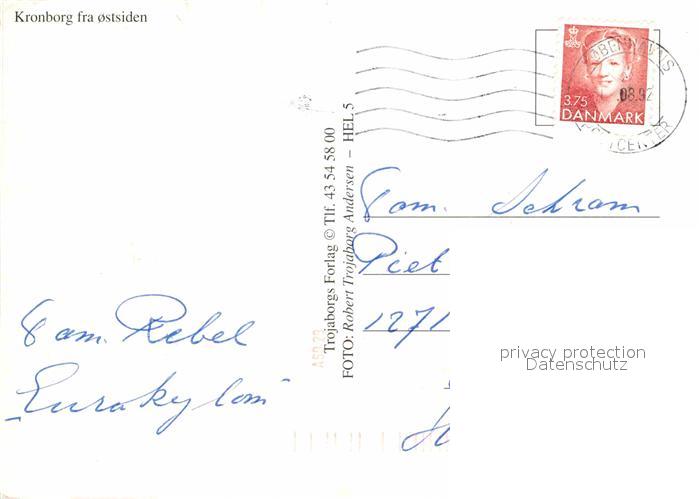 Kronborg fra østsiden
KØBENHAVNS
.08.92
POSTCENTER
3.75
DANMARK
Trojaborgs Forlag © Tlf. 43 54 58 00
FOTO: Robert Trojaborg Andersen – HEL 5
Fam. Schram
Piet
1271
privacy protection
Datenschutz
Fam. Rebel
"Eurokylom"